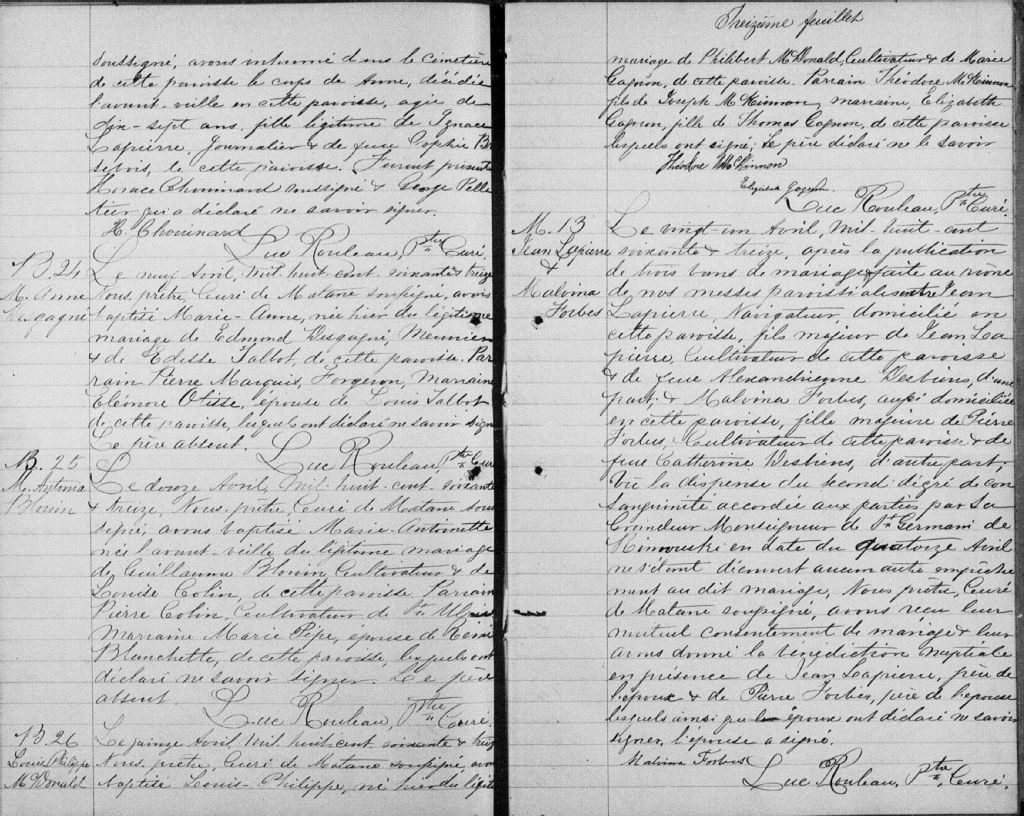 soussigné, avons inhumé dans le cimetière
de cette paroisse le corps de Anne, décédée
l'avant-veille en cette paroisse, agée de
dix-sept ans, fille légitime de Ignace
Lapierre, Journalier & de feue Sophie
de cette paroisse. Furent présents
Horace Chouinard soussigné & George Pelle
tier qui a déclaré ne savoir signer.
H. Chouinard
Luc Rouleau, Ptre Curé.
B. 24
M. Anne
Desgagné
Le neuf Avril, mil-huit-cent-soixante & treize
Nous, prêtre, Curé de Matane soussigné, avons
baptisé Marie-Anne, née hier du légitime
mariage de Edmond Desgagné, Meunier
& de Edesse Talbot, de cette paroisse. Par
rain Pierre Marquis, Forgeron, Marraine
Eléonore Otisse, épouse de Louis Talbot
de cette paroisse, lesquels ont déclaré ne savoir sign
Le père absent.
Luc Rouleau, Ptre Curé
B. 25
M. Antonia
Blouin
Le douze Avril, mil-huit-cent-soixante
& treize, Nous, prêtre, Curé de Matane sous
signé, avons baptisé Marie-Antoinette
née l'avant-veille du légitime mariage
de Guillaume Blouin Cultivateur & de
Louise Colin, de cette paroisse. Parrain
Pierre Colin, Cultivateur de St
Marraine Marie Pipe, épouse de Remi
Blanchette, de cette paroisse, lesquels ont
déclaré ne savoir signer. Le père
absent.
Luc Rouleau, Ptre Curé.
B. 26
Louis Philippe
McDonald
Le quinze Avril, mil-huit-cent-soixante & treize
Nous, prêtre, Curé de Matane soussigné avons
baptisé Louis-Philippe, né hier du légiti
Treizième feuillet
mariage de Philibert McDonald, Cultivateur & de Marie
Gagnon, de cette paroisse. Parrain Théodore McKinnon
fils de Joseph McKinnon, marraine, Elizabeth
Gagnon, fille de Thomas Gagnon, de cette paroisse
lesquels ont signé; Le père déclaré ne le savoir
Théodore McKinnon
Gagnon
Luc Rouleau, Ptre Curé.
M. 13
Jean Lapierre
&
Malvina
Forbes
Le vingt-un Avril, mil-huit-cent
soixante & treize, après la publication
de trois bans de mariage faite au prone
de nos messes paroissiales entre Jean
Lapierre, Navigateur, domicilié en
cette paroisse, fils majeur de Jean La
pierre, Cultivateur de cette paroisse
& de feue Alexandrienne Desbiens, d'une
part; & Malvina Forbes, aussi domiciliée
en cette paroisse, fille majeure de Pierre
Forbes, Cultivateur de cette paroisse & de
feue Catherine Desbiens, d'autre part;
Vû la dispense du second dégré de con
sanguinité accordée aux parties par Sa
Grandeur Monseigneur de St Germain de
Rimouski en date du quatorze Avril
ne s'étant découvert aucun autre empêche
ment au dit mariage, Nous, prêtre, Curé
de Matane soussigné, avons reçu leur
mutuel consentement de mariage & leur
avons donné la bénédiction nuptiale
en présence de Jean Lapierre, père de
l'époux & de Pierre Forbes, père de l'épouse
lesquels ainsi que époux ont déclaré ne savoir
signer, l'épouse a signé.
Malvina Forbes
Luc Rouleau, Ptre Curé.